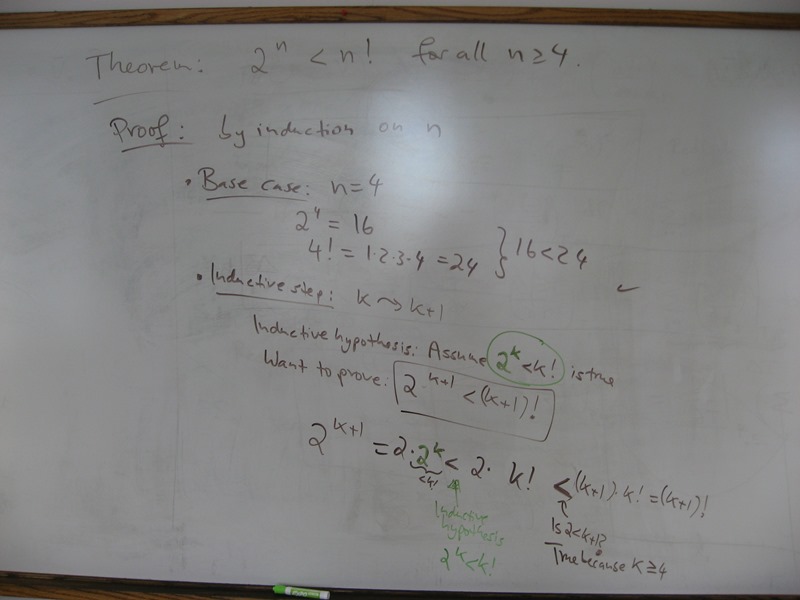 Theorem: 2^n < n! for all n ≥ 4.
Proof: by induction on n
• Base case: n=4
2^4 = 16
4! = 1·2·3·4 = 24 } 16<24 ✓
• Inductive step: k ⤳ k+1
Inductive hypothesis: Assume 2^k < k! is true
Want to prove: 2^{k+1} < (k+1)!
2^{k+1} = 2·2^k < 2· k! < (k+1)·k! = (k+1)!
<k!
Inductive
hypothesis
2^k < k!
Is 2<k+1?
True because k ≥ 4